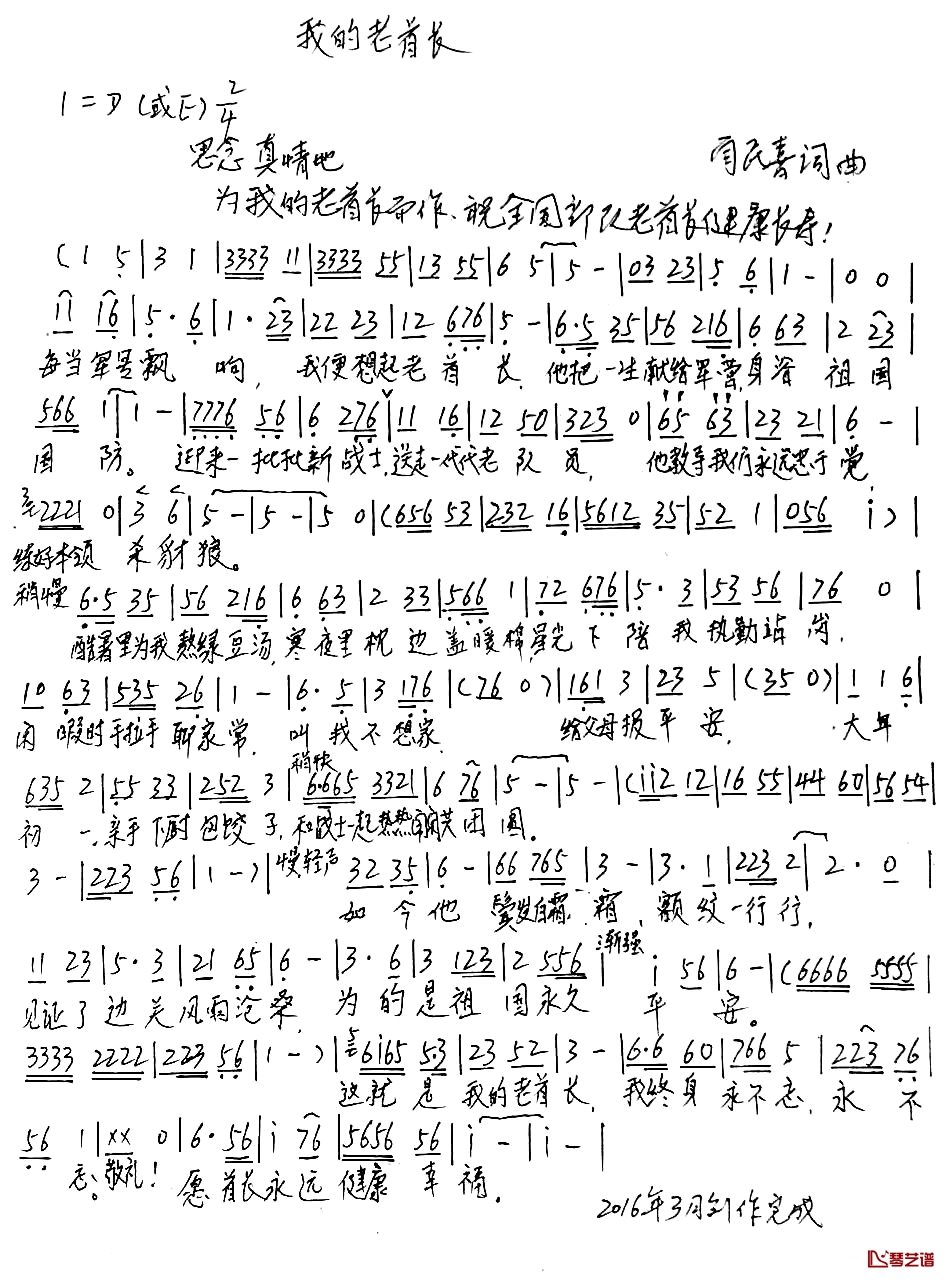 我的老首长
1=D (或E) 2/4
思念真情地
民喜词曲
为我的老首长而作、祝全国部队老首长健康长寿!
(1 5|3 1|3333 11|3333 55|13 55|6 5|5 -|03 23|5 6|1 -|0 0|
11 16|5· 6|1· 23|22 23|12 676|5 -|6·5 35|56 216|6 63|2 23|
每当军号飘响, 我便想起老首长, 他把一生献给军营身浴祖国
566 1|1 -|7776 56|6 276|11 16|12 50|323 0|65 63|23 21|6 -|
国防。迎来一批批新战士,送走一代代老队员, 他教导我们永远忠于党
2221 0|3 6|5 -|5 -|5 0|(656 53|232 16|5612 35|52 1|056 i)|
练好本领 杀豺狼。
稍慢 6·5 35|56 216|6 63|2 33|566 1|72 676|5· 3|53 56|76 0|
酷暑里为我熬绿豆汤,寒夜里枕边盖暖棉,星光下陪我执勤站岗,
10 63|535 26|1 -|6· 5|3 176|(76 0)|161 3|23 5|(35 0)|1 1 6|
闲暇时手拉手聊家常, 叫我不想家, 给父母报平安, 大年
稍快
635 2|55 33|252 3|6·665 3321|6 76|5 -|5 -|(ii2 12|16 55|44 60|56 54|
初一,亲手下厨包饺子,和战士一起热热闹闹共团圆。
3 -|223 56|1 -)|慢轻声 32 35|6 -|66 765|3 -|3· 1|223 2|2· 0|
如今他 鬓发白霜霜,额纹一行行,
渐强
11 23|5· 3|21 65|6 -|3· 6|3 123|2 556|i 56|6 -|(6666 5555|
见证了边关风雨沧桑,为的是祖国永久平安。
3333 2222|223 56|1 -)|5 6i65 5·3|23 52|3 -|6·6 60|766 5|223 76|
这就是我的老首长,我终身永不忘,永不
56 1|xx 0|6· 56|i 76|5656 56|i -|i -|
忘。敬礼!愿首长永远健康幸福。
2016年3月创作完成
琴艺谱